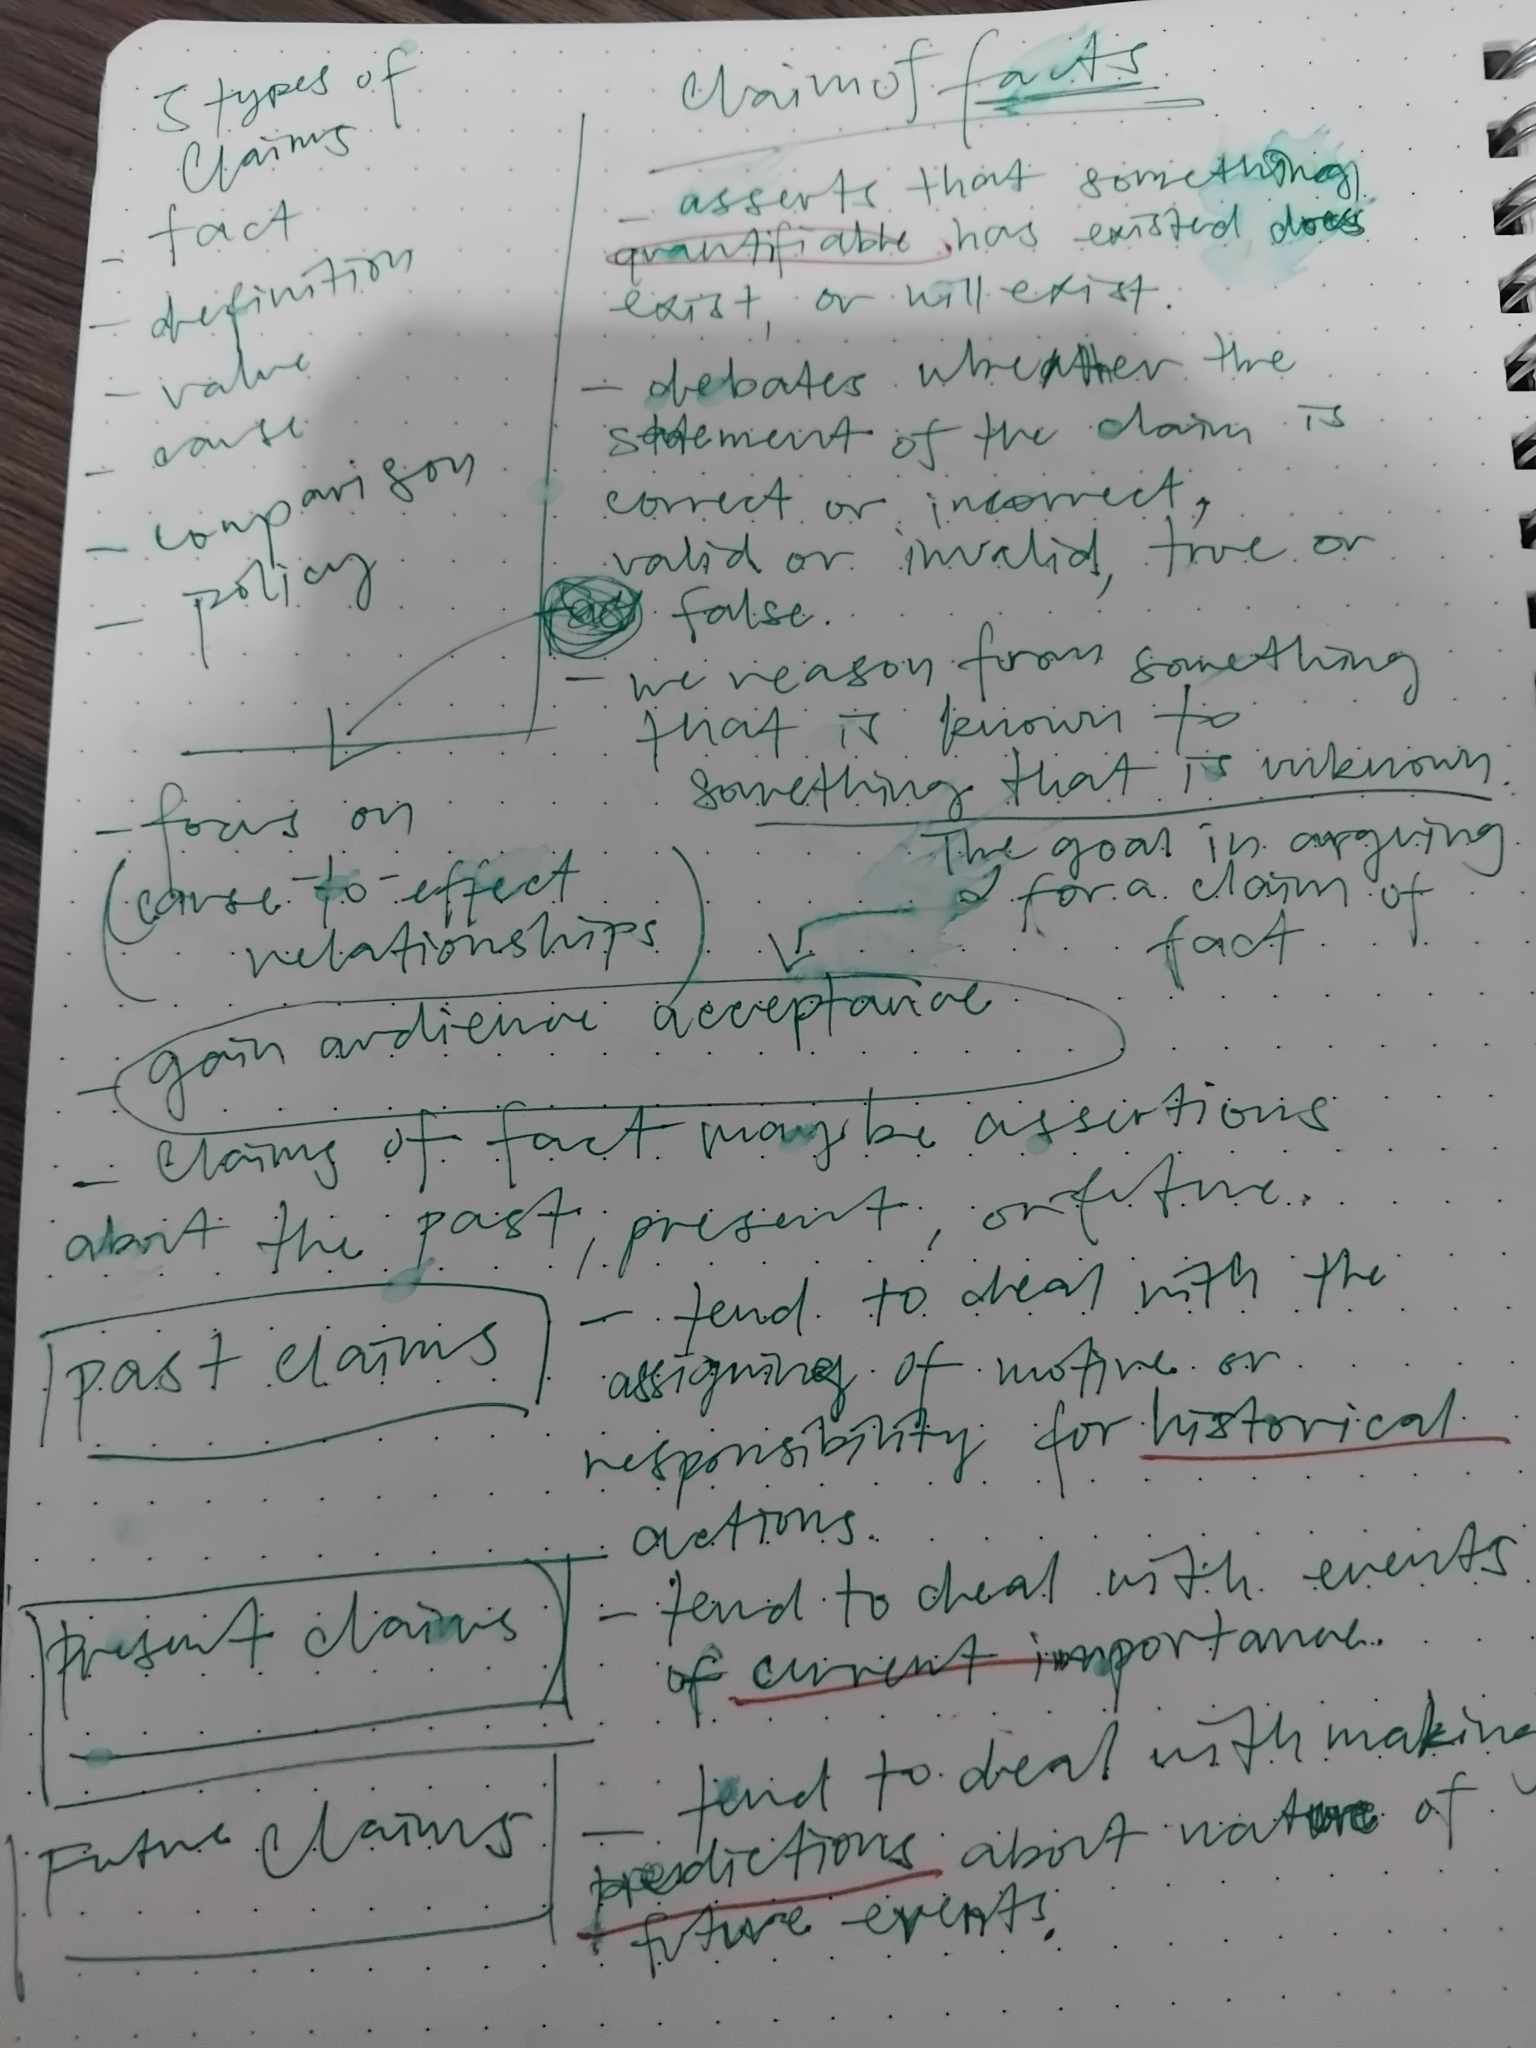 5 types of
Claims
- fact
- definition
- value
- cause
- comparison
- policy
Claim of facts
- asserts that something
quantifiable has existed does
exist, or will exist.
- debates whether the
statement of the claim is
correct or incorrect,
valid or invalid, true or
false.
- we reason from something
that is known to
something that is unknown.
- focus on
(cause-to-effect
relationships)
The goal in arguing
for a claim of
fact
- gain audience acceptance
- Claims of fact may be assertions
about the past, present, or future.
past claims
- tend to deal with the
assigning of motive or
responsibility for historical
actions.
Present claims
- tend to deal with events
of current importance.
Future claims
- tend to deal with making
predictions about nature of
future events.